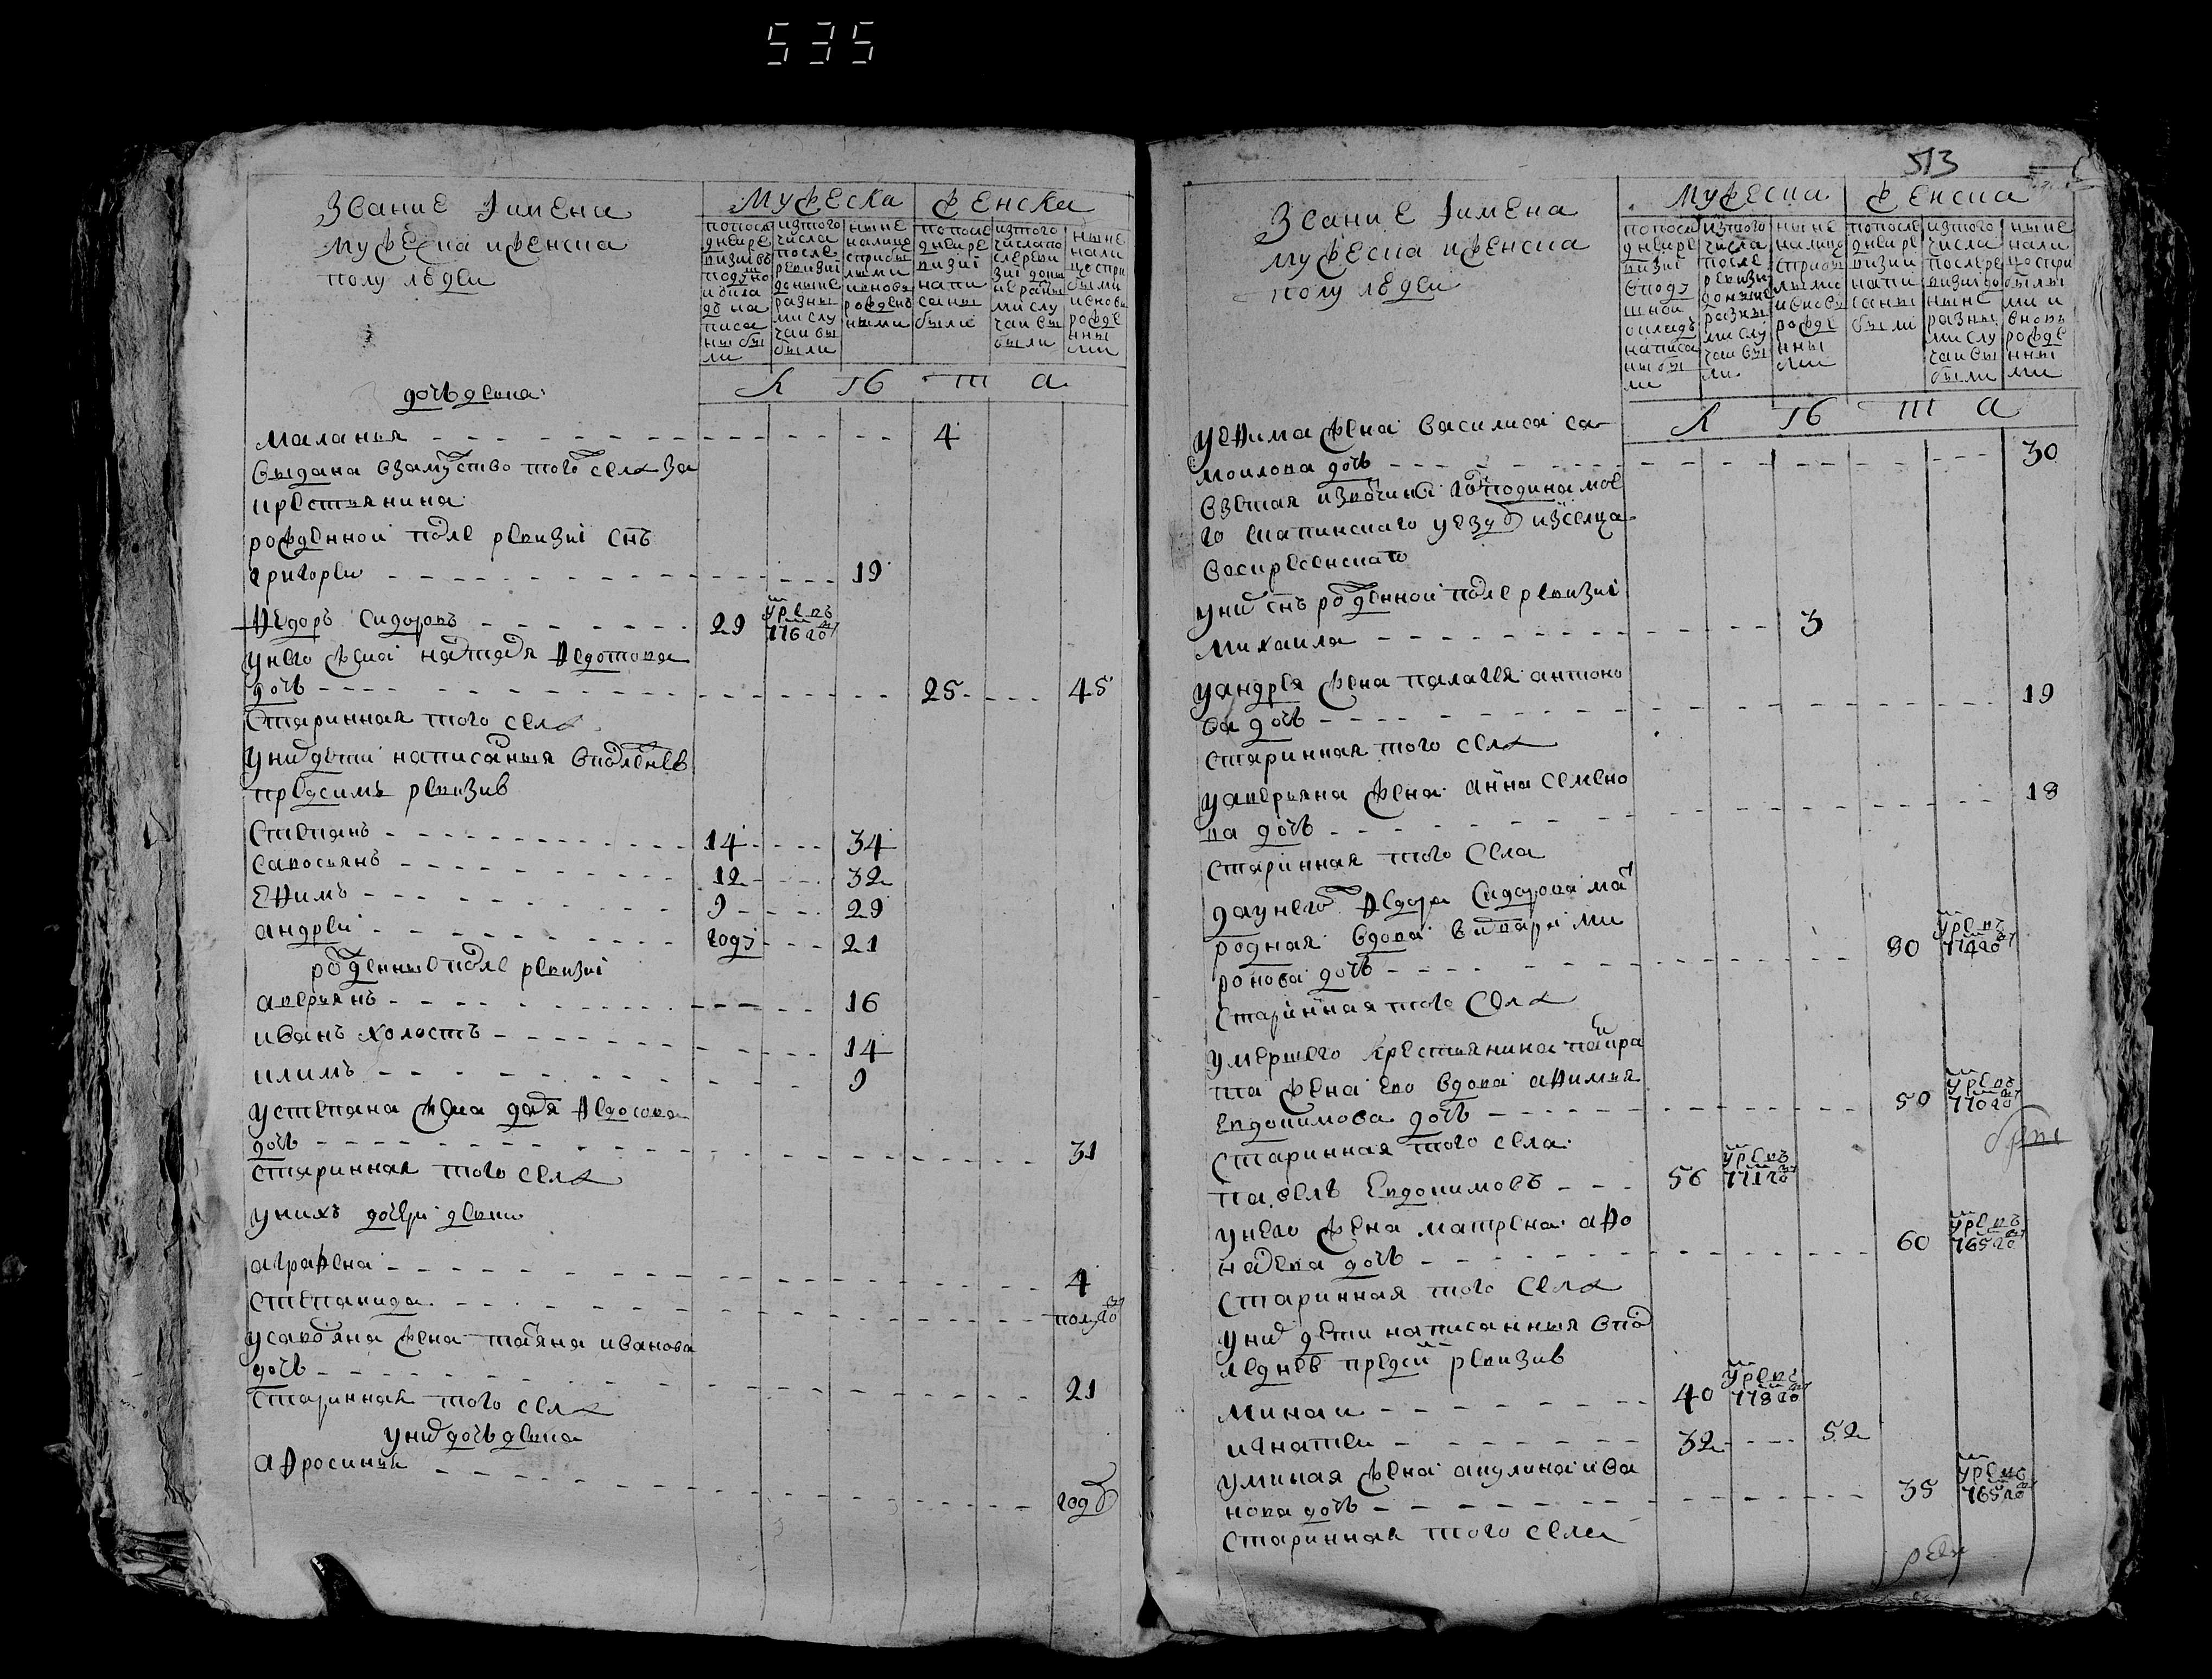 535
Звание Iимена
мужеска иженска
полу людеи
Мужеска
Женска
попосл
днеире
визиi въ
подушно
мокла
дъ на
писа
ны бы
ли
изтого
числа
после
ревизиi
доныне
разны
ми слу
чаи вы
были
ныне
налицо
сприбы
лыми
ивновь
рожден
ными
попосле
днеире
визиi
напи
саны
были
изтого
числапо
слереви
зиi доны
неразны
ми слу
чаи вы
были
ныне
нали
цоспри
былыми
ивновь
рожде
нны
ми
Л ѣ т а
дочь девка
маланья 4
выдана взамужство того села за
крестьянина
рожденнои после ревизиi снъ
григореи 19
Ѳедоръ Сидоровъ 29 умре въ 776 год
унего жена наталья Ѳедотова
дочь 25 45
Старинная того села
уних дети написанныя впоследнеи
предсимъ ревизиi
Степанъ 14 34
савостьянъ 12 32
еѲимъ 9 29
андреи году 21
рожденные после ревизиi
аверьянъ 16
иванъ холостъ 14
климъ 9
устепана жена дарья Ѳедосова
дочь 31
старинная того села
унихъ дочери девки
аграѲена 4
степанида полугоду
усавостьяна жена татьяна иванова
дочь 21
старинная того села
уних дочь девка
аѲросинья году
513
Звание Iимена
мужеска иженска
полу людеи
Мужеска
Женска
попосл
днеире
визиi
вподу
шнои
окладъ
написа
ны бы
ли
изтого
числа
после
ревизиi
доныне
разны
ми слу
чаи вы
ли
ныне
налицо
сприбы
лыми
ивновь
рожде
нны
ми
попосле
днеире
визии
напи
саны
были
изтого
числа
послере
визии до
ныне
разны
ми слу
чаи вы
были
ныне
нали
цоспри
былы
ми и
вновь
рожде
нны
ми
Л ѣ т а
уеѲима жена василиса са
моилова дочь 30
взетая извотчины господина мое
го шацкого уезду изселца
воскресенскаго
уних снъ рожденнои после ревизиi
михаила 3
уандрея жена палагея антоно
ва дочь 19
старинная того села
уаверьяна жена анна семено
ва дочь 18
старинная того села
даунего Ѳедора Сидорова мать
родная вдова ми
ронова дочь 80 умре въ 774 год
Старинная того Села
умершего крестьянина панкра
та жена ево вдова аѲимья
евдокимова дочь 50 умре въ 770 год
старинная того села
павелъ евдокимовъ 56 умре въ 771 год
унего жена матрена аѲо
насьева дочь 60 умре въ 765 год
старинная того села
уних дети написанныя впос
леднеи предсим ревизиi
минаи 40 умре въ 778 год
игнатеи 32 52
уминая жена акулина ива
нова дочь 35 умре въ 765 год
старинная того села